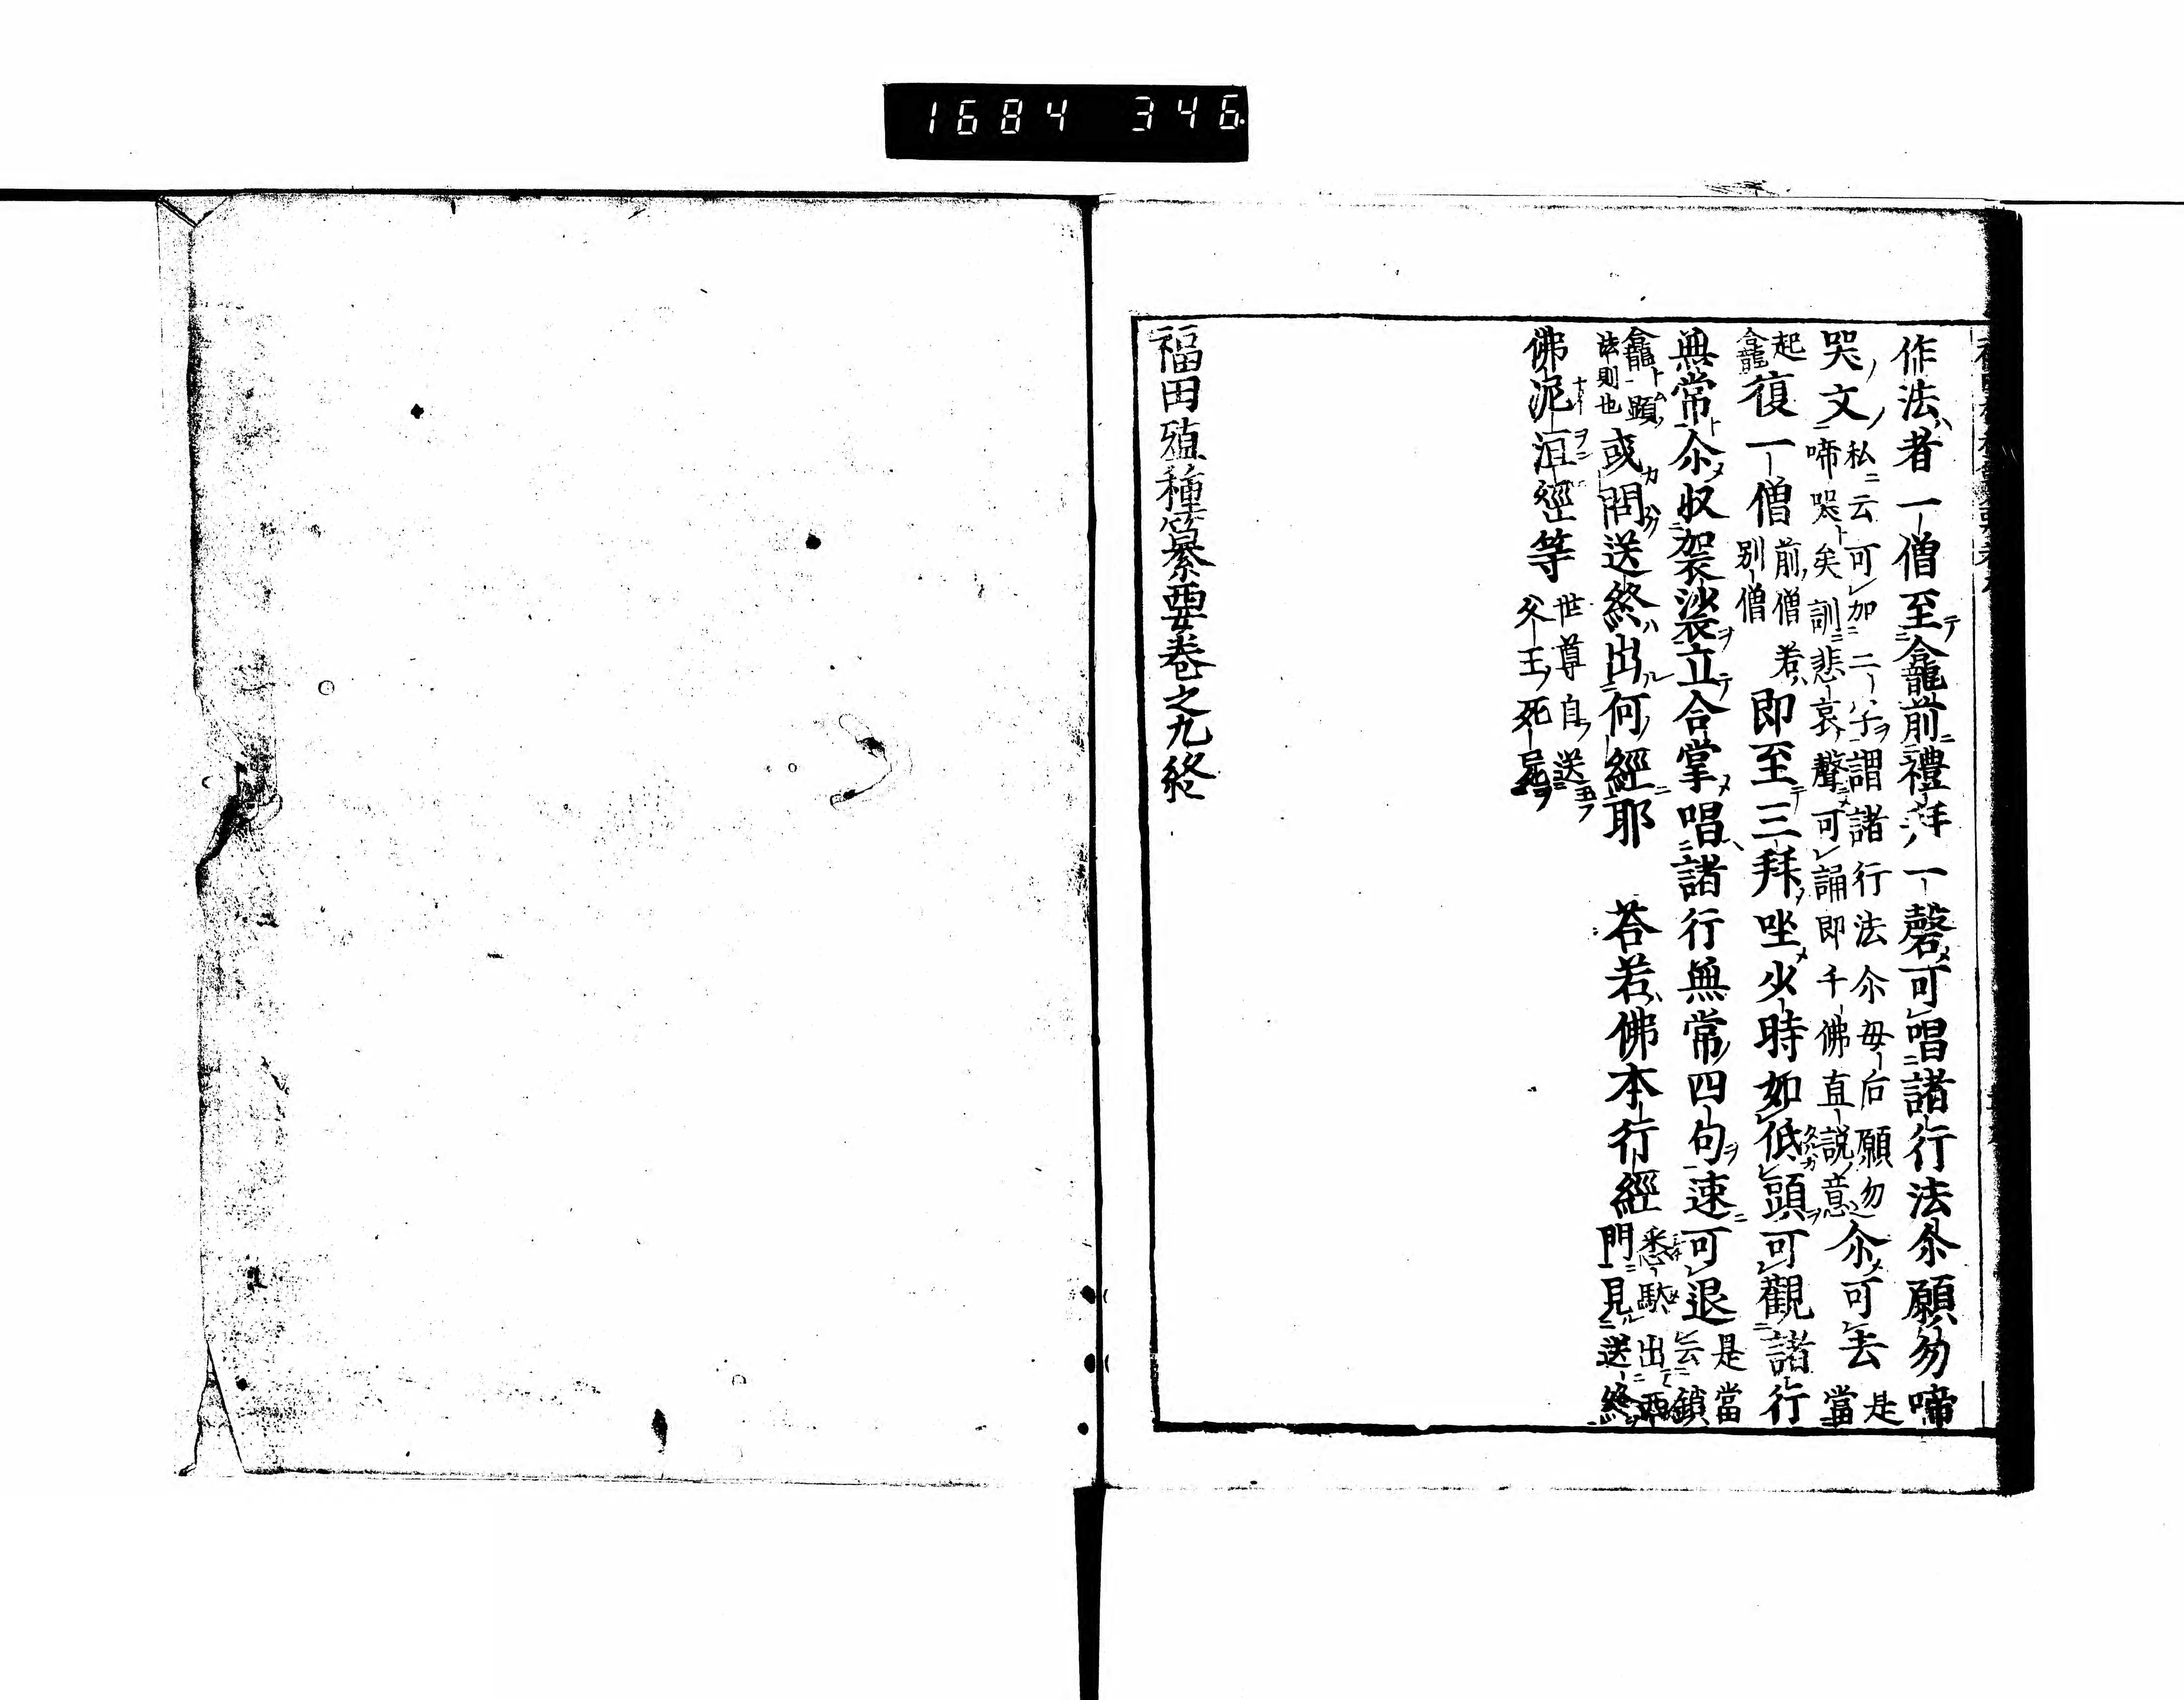 1684 346
作法者一僧至龕前禮拜一磬可唱諸行法尒願勿啼
哭文私云可加二子謂諸行法尒毋后願勿啼哭矣訓悲哀聲可誦即千佛直說意尒可去是當
起龕復一僧前僧若別僧即至三拜坐少時如低頭可觀諸行
無常尒収袈裟立合掌唱諸行無常四句速可退是當云鎖
龕顕法則也或問送終出何經耶 荅若佛本行經悉馱出西門見送終
佛泥洹經等世尊自送父王死屍
福田殖種纂要卷之九終